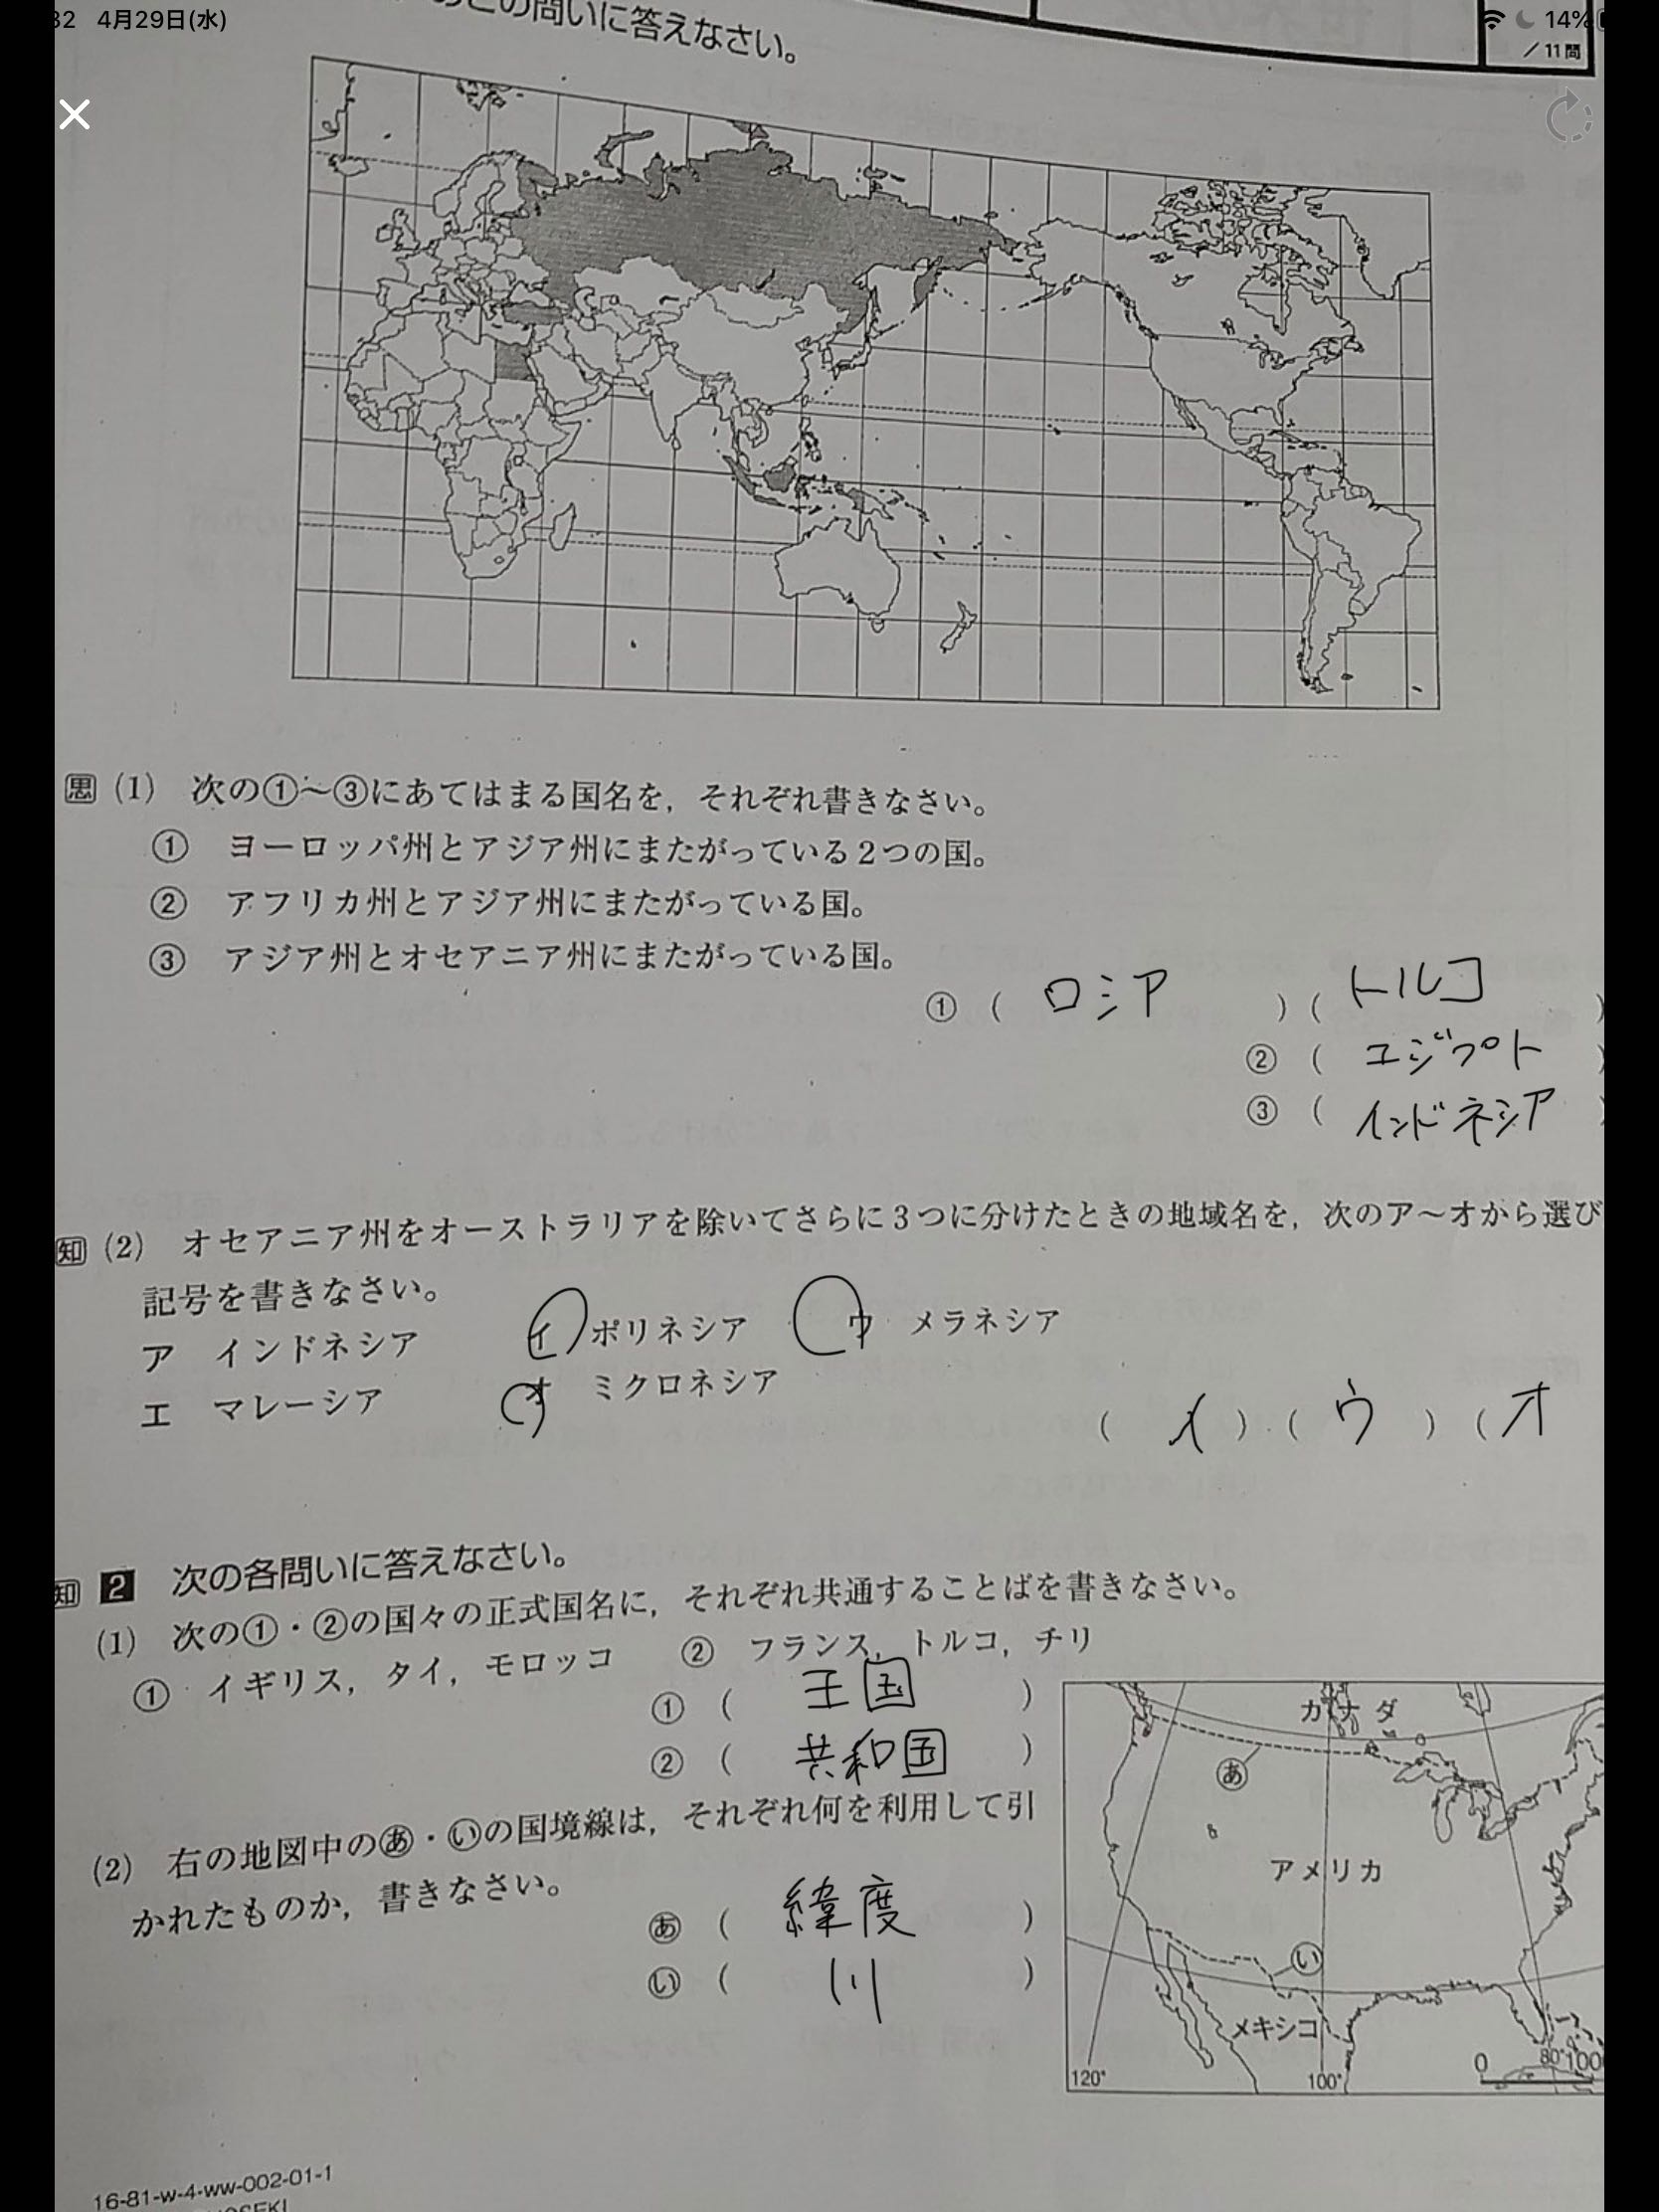 32 4月29日(水)
14%
の問いに答えなさい。
/11問
思 (1) 次の①～③にあてはまる国名を，それぞれ書きなさい。
① ヨーロッパ州とアジア州にまたがっている2つの国。
② アフリカ州とアジア州にまたがっている国。
③ アジア州とオセアニア州にまたがっている国。
① ( ロシア ) ( トルコ )
② ( エジプト )
③ ( インドネシア )
知 (2) オセアニア州をオーストラリアを除いてさらに3つに分けたときの地域名を，次のア～オから選び
記号を書きなさい。
ア インドネシア イ ポリネシア ウ メラネシア
エ マレーシア オ ミクロネシア
( イ ) ( ウ ) ( オ
知 2 次の各問いに答えなさい。
(1) 次の①・②の国々の正式国名に，それぞれ共通することばを書きなさい。
① イギリス，タイ，モロッコ ② フランス，トルコ，チリ
① ( 王国 )
② ( 共和国 )
(2) 右の地図中のあ・いの国境線は，それぞれ何を利用して引
かれたものか，書きなさい。
あ ( 緯度 )
い ( 川 )
カナダ
あ
アメリカ
い
メキシコ
120° 100° 80°
0 100
16-81-w-4-ww-002-01-1